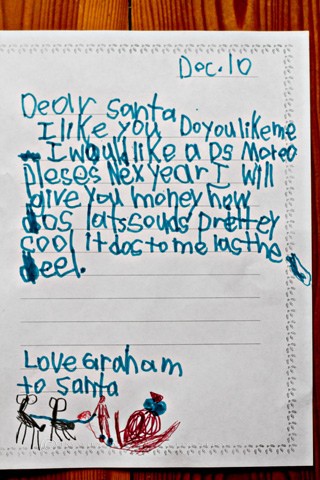 Dec. 10
Dear Santa
I like you Do you like me
I would like a Ds Mateo
pleses Nex year I will
give you money how
dos lats souds prettey
cool it dos to me lasthe
deel.
Love Graham
to santa